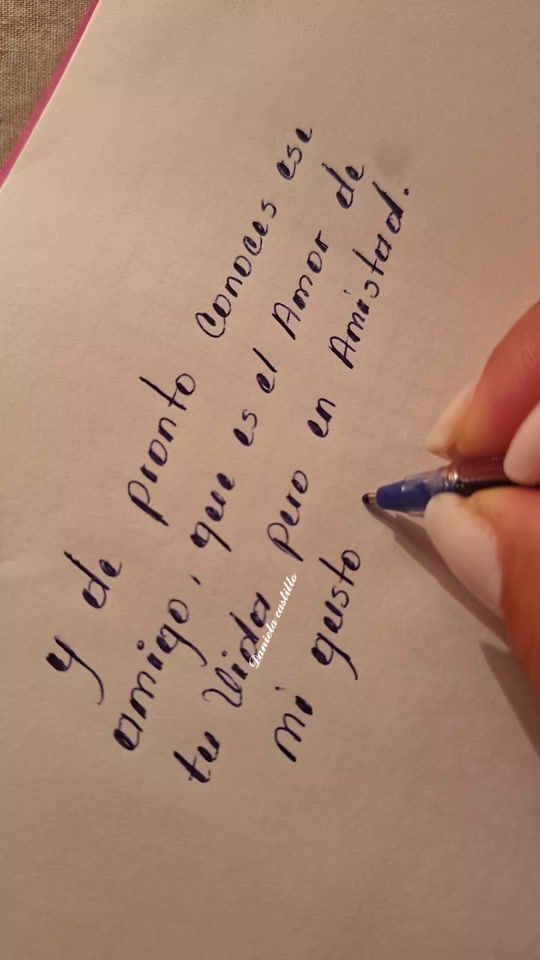 y de pronto conoces ese
amigo, que es el Amor de
tu Vida pero en Amistad.
mi gusto
Daniela castillo